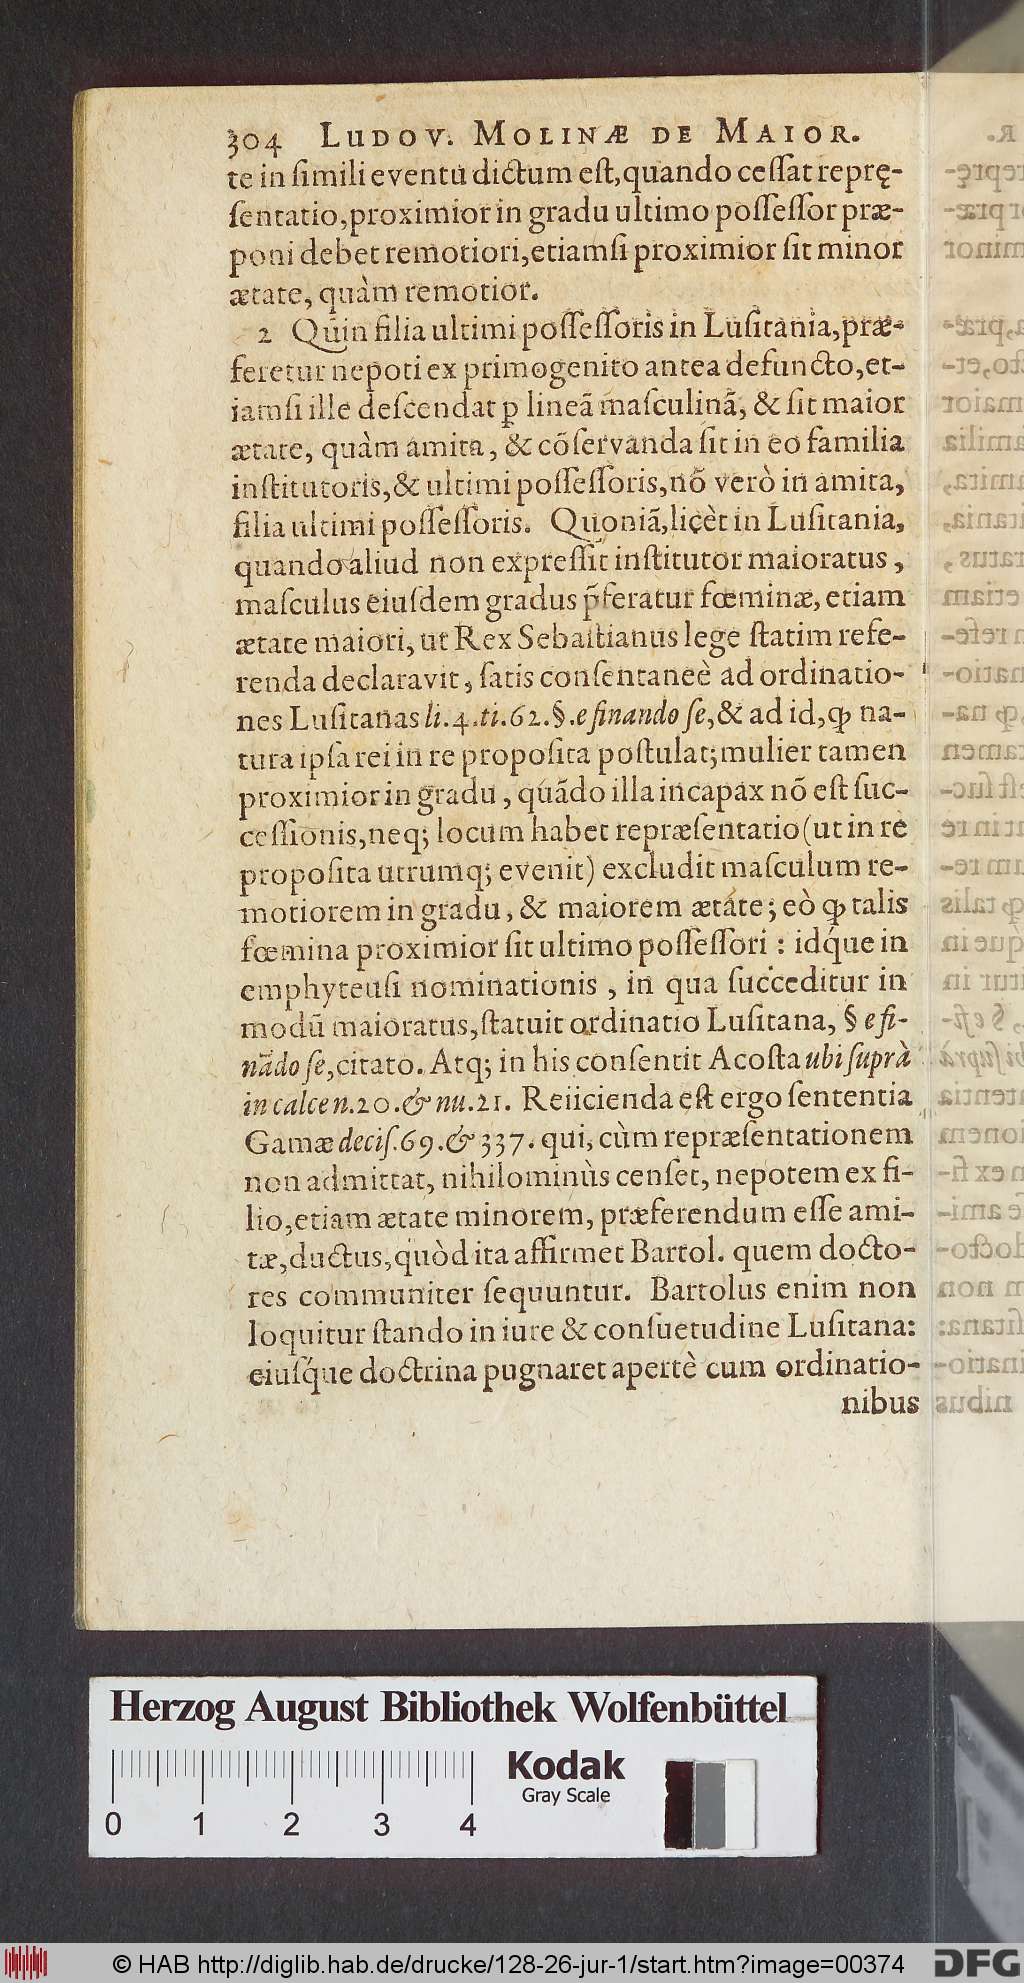 304 LUDOV. MOLINÆ DE MAIOR.
te in ſimili eventu dictum eſt, quando ceſſat reprę-
ſentatio, proximior in gradu ultimo poſſeſſor præ-
poni debet remotiori, etiamſi proximior ſit minor
ætate, quàm remotior.
2 Quin filia ultimi poſſeſſoris in Luſitania, præ-
feretur nepoti ex primogenito antea defuncto, et-
iamſi ille deſcendat ꝑ lineã maſculinã, & ſit maior
ætate, quàm amita, & cõſervanda ſit in eo familia
inſtitutoris, & ultimi poſſeſſoris, nõ verò in amita,
filia ultimi poſſeſſoris. Quoniã, licèt in Luſitania,
quando aliud non expreſſit inſtitutor maioratus,
maſculus eiuſdem gradus p̃feratur fœminæ, etiam
ætate maiori, ut Rex Sebaſtianus lege ſtatim refe-
renda declaravit, ſatis conſentaneè ad ordinatio-
nes Luſitanas li. 4. ti. 62. §. e finando ſe, & ad id, ꝙ na-
tura ipſa rei in re propoſita poſtulat; mulier tamen
proximior in gradu, quãdo illa incapax nõ eſt ſuc-
ceſſionis, neq; locum habet repræſentatio (ut in re
propoſita utrumq; evenit) excludit maſculum re-
motiorem in gradu, & maiorem ætate; eò ꝙ talis
fœmina proximior ſit ultimo poſſeſſori: idq́ue in
emphyteuſi nominationis, in qua ſucceditur in
modũ maioratus, ſtatuit ordinatio Luſitana, § e fi-
nãdo ſe, citato. Atq; in his conſentit Acoſta ubi ſuprà
in calce n. 20. & nu. 21. Reiicienda eſt ergo ſententia
Gamæ deciſ. 69. & 337. qui, cùm repræſentationem
non admittat, nihilominùs cenſet, nepotem ex fi-
lio, etiam ætate minorem, præferendum eſſe ami-
tæ, ductus, quòd ita affirmet Bartol. quem docto-
res communiter ſequuntur. Bartolus enim non
loquitur ſtando in iure & conſuetudine Luſitana:
eiuſq́ue doctrina pugnaret apertè cum ordinatio-
nibus
Herzog August Bibliothek Wolfenbüttel
Kodak
Gray Scale
0 1 2 3 4
© HAB http://diglib.hab.de/drucke/128-26-jur-1/start.htm?image=00374
DFG